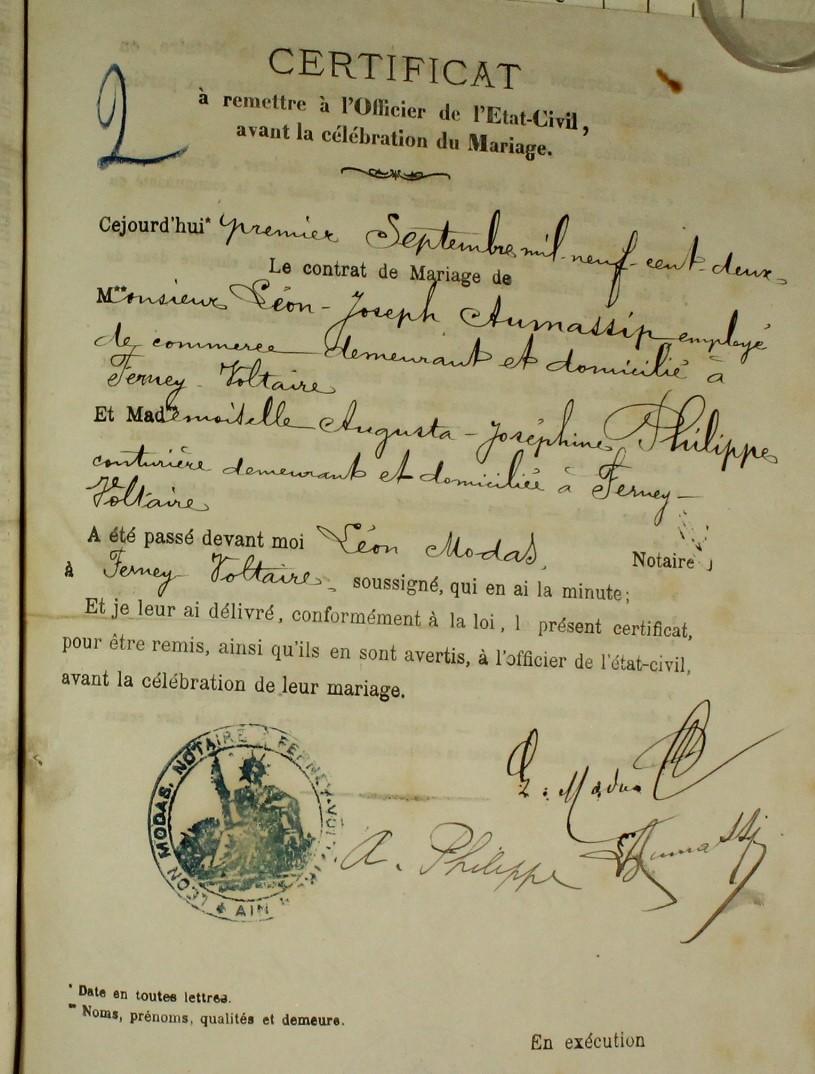 CERTIFICAT
à remettre à l'Officier de l'Etat-Civil,
avant la célébration du Mariage.
2
Cejourd'hui* premier Septembre mil-neuf-cent-deux
Le contrat de Mariage de
M**onsieur Léon-Joseph Aumassip, employé
de commerce demeurant et domicilié à
Ferney-Voltaire
Et Mad**emoiselle Augusta-Joséphine Philippe
couturière demeurant et domiciliée à Ferney-
Voltaire
A été passé devant moi Léon Modas, Notaire
à Ferney Voltaire, soussigné, qui en ai la minute;
Et je leur ai délivré, conformément à la loi, l présent certificat,
pour être remis, ainsi qu'ils en sont avertis, à l'officier de l'état-civil,
avant la célébration de leur mariage.
LÉON MODAS, NOTAIRE A FERNEY-VOLTAIRE
AIN
L. Modas
A. Philippe Aumassip
* Date en toutes lettres.
** Noms, prénoms, qualités et demeure.
En exécution